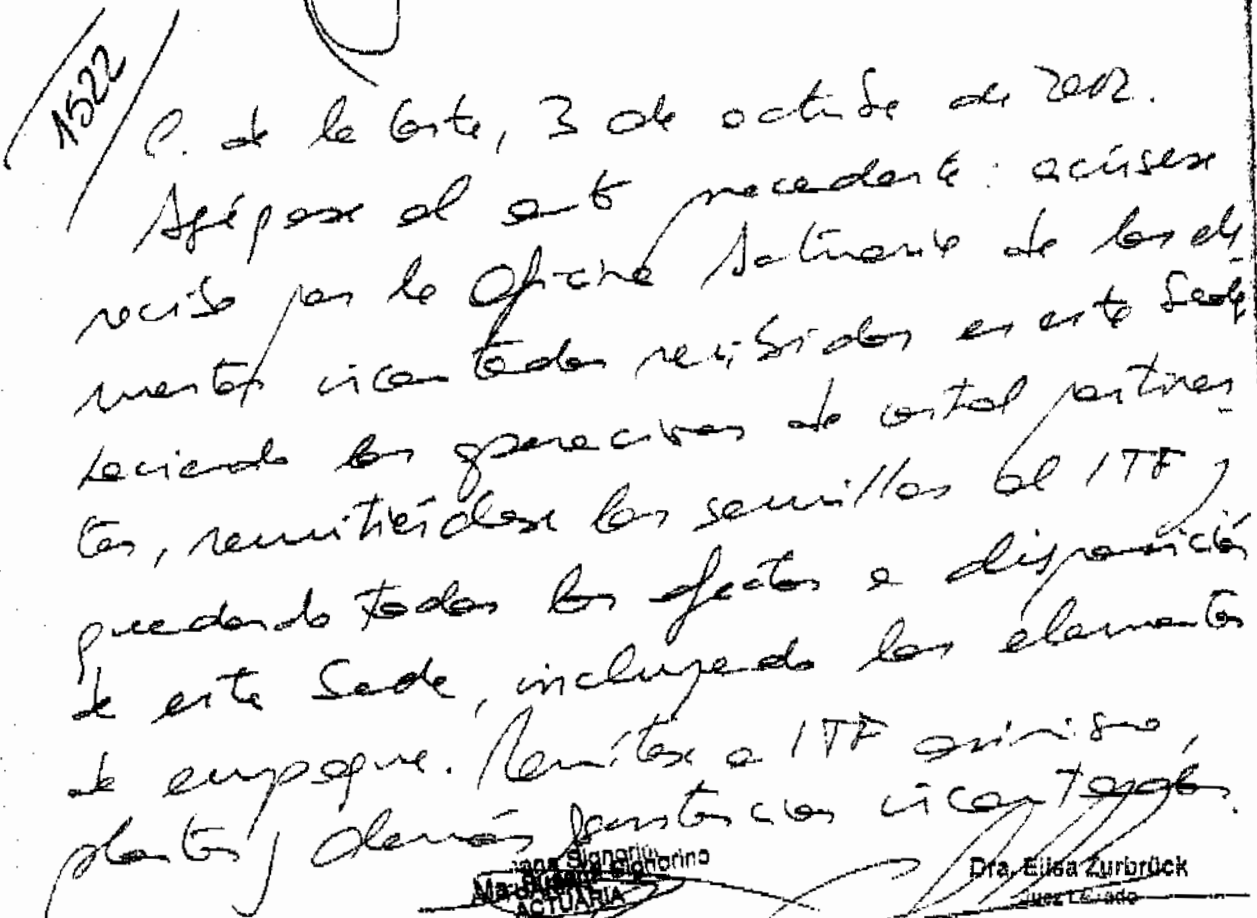 1522
C. de la Costa, 3 de octubre de 2002.
Agréguese el acta precedente: acúsese
recibo por la Oficina Actuaria de los ele
mentos incautados recibidos en esta Sede
haciendo las de estal pertinen-
tes, remitiéndose las semillas al ITF y
quedando todos los efectos a disposición
de esta Sede, incluyendo los elementos
de empaque. Remítase a ITF asimismo,
plantas y demás sustancias incautadas.
Signorino
ACTUARIA
Dra. Elisa Zurbrück
Juez Letrado